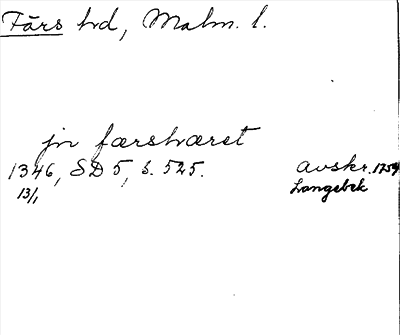 Färs hd, Malm. l.
jn færshæret
1346, SD 5, s. 525. avskr. 1759
13/1 Langebek